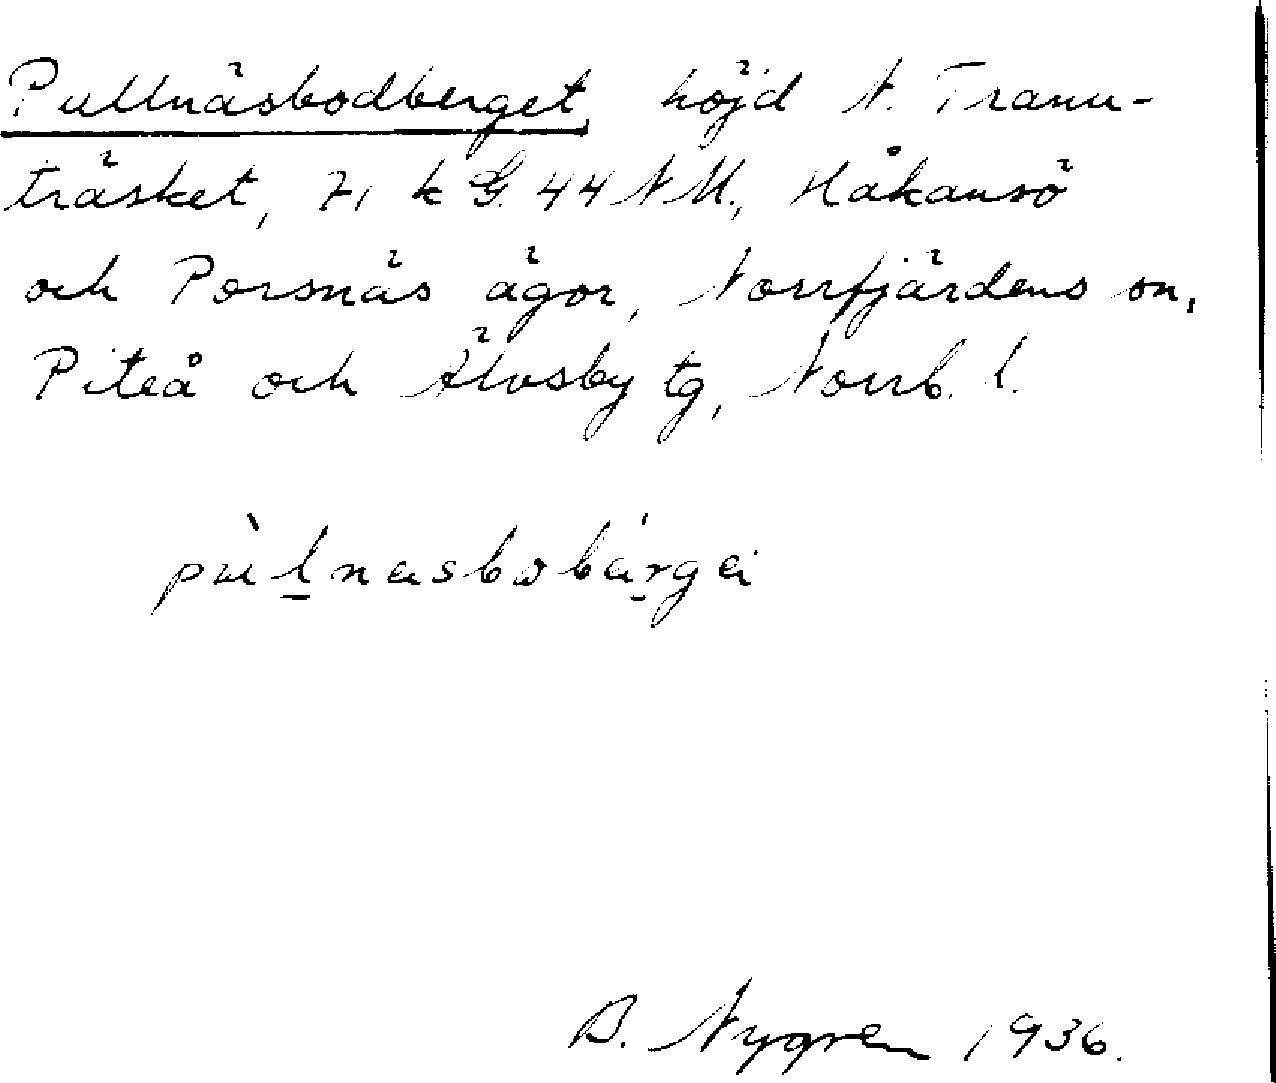 Pullnäsbodberget, höjd N. Tranu-
träsket, 71 k G. 44 NM., Håkansö
och Porsnäs ägor, Norrfjärdens sn,
Piteå och Älvsby tg, Norrb. l.
pùlnasbobárgä
B. Nygren 1936.